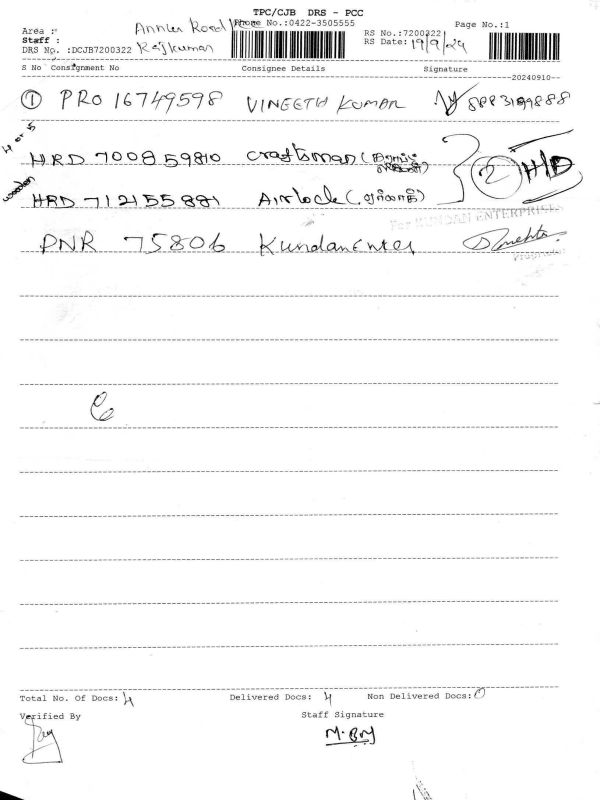 TPC/CJB DRS - PCC
Area : Annur Road
Phone No.:0422-3505555
Page No.:1
Staff : Rajkumar
RS No.:7200322
DRS No. :DCJB7200322
RS Date: 19/9/24
S No Consignment No Consignee Details Signature
20240910
① PRO 16749598 VINEETH KUMAR
4 or 5
HRD 700859810 craftsman
wooden
HRD 712155881 Airlock (ஏர்லாக்)
② H/D
For KUNDAN ENTERPRISES
PNR 75806 Kundan Enter
Proprietor
Total No. Of Docs: 4 Delivered Docs: 4 Non Delivered Docs: 0
Verified By Staff Signature